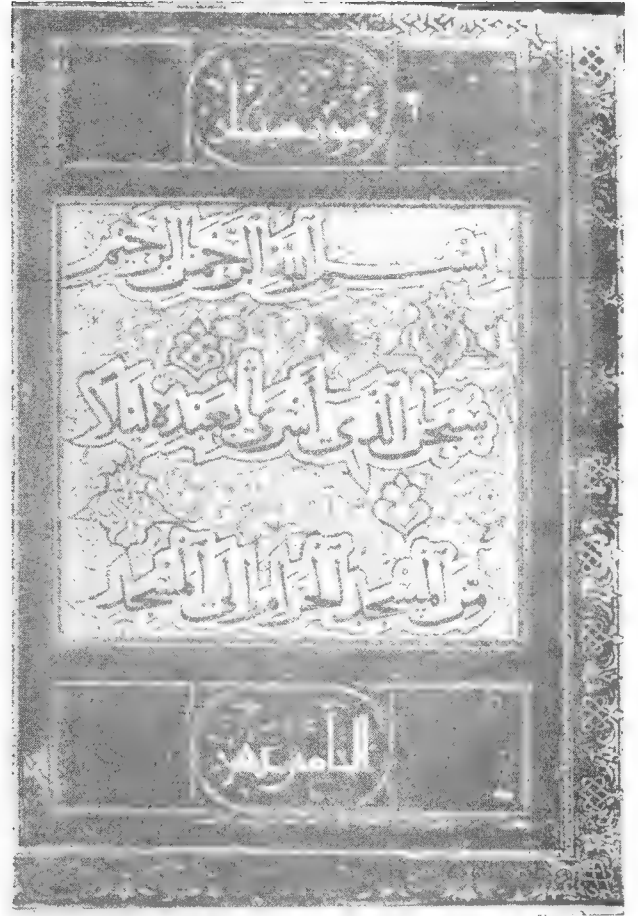 بسم الله الرحمن الرحيم
سبحن الذى أسرى بعبده ليلا
من المسجد الحرام إلى المسجد
الخامس عشر